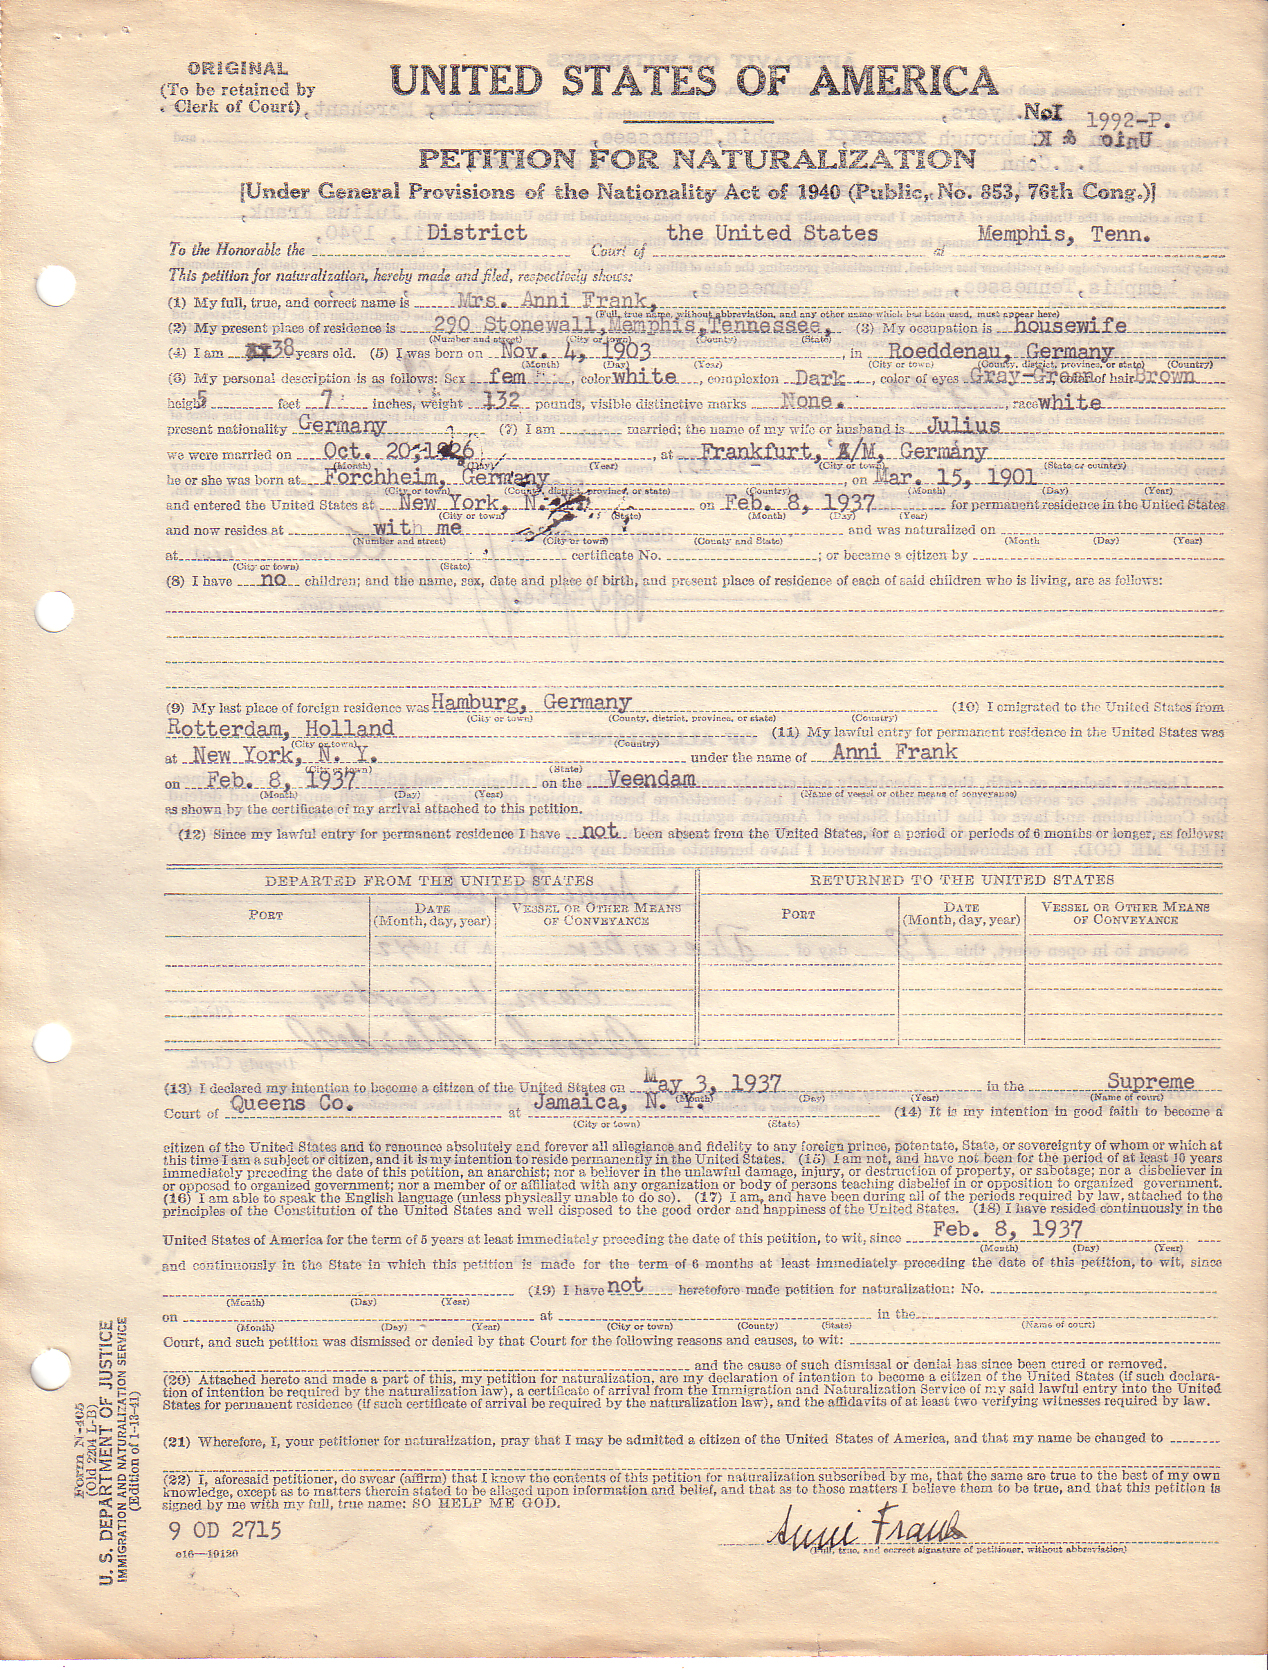 ORIGINAL
(To be retained by
Clerk of Court)
UNITED STATES OF AMERICA
No. 1992-P.
PETITION FOR NATURALIZATION
[Under General Provisions of the Nationality Act of 1940 (Public, No. 853, 76th Cong.)]
To the Honorable the District Court of the United States at Memphis, Tenn.
This petition for naturalization, hereby made and filed, respectively shows:
(1) My full, true, and correct name is Mrs. Anni Frank,
(Full, true name, without abbreviation, and any other name which has been used, must appear here)
(2) My present place of residence is 290 Stonewall, Memphis, Tennessee, (3) My occupation is housewife
(Number and street) (City or town) (County) (State)
(4) I am 38 years old. (5) I was born on Nov. 4, 1903, in Roeddenau, Germany
(Month) (Day) (Year) (City or town) (County, district, province, or state) (Country)
(6) My personal description is as follows: Sex fem, color white, complexion Dark, color of eyes Gray-Green, color of hair Brown
height 5 feet 7 inches, weight 132 pounds, visible distinctive marks None., race white
present nationality Germany (7) I am married; the name of my wife or husband is Julius
we were married on Oct. 20, 1926, at Frankfurt, A/M, Germany
(Month) (Day) (Year) (City or town) (State or country)
he or she was born at Forchheim, Germany, on Mar. 15, 1901
(City or town) (County, district, province, or state) (Country) (Month) (Day) (Year)
and entered the United States at New York, N. Y. on Feb. 8, 1937 for permanent residence in the United States
(City or town) (State) (Month) (Day) (Year)
and now resides at with me and was naturalized on
(Number and street) (City or town) (County and State) (Month (Day) (Year)
at certificate No. ; or became a citizen by
(City or town) (State)
(8) I have no children; and the name, sex, date and place of birth, and present place of residence of each of said children who is living, are as follows:
(9) My last place of foreign residence was Hamburg, Germany (10) I emigrated to the United States from
(City or town) (County, district, province, or state) (Country)
Rotterdam, Holland (11) My lawful entry for permanent residence in the United States was
(City or town) (Country)
at New York, N. Y. under the name of Anni Frank
(City or town) (State)
on Feb. 8, 1937 on the Veendam
(Month) (Day) (Year) (Name of vessel or other means of conveyance)
as shown by the certificate of my arrival attached to this petition.
(12) Since my lawful entry for permanent residence I have not been absent from the United States, for a period or periods of 6 months or longer, as follows:
DEPARTED FROM THE UNITED STATES RETURNED TO THE UNITED STATES
PORT DATE (Month, day, year) VESSEL OR OTHER MEANS OF CONVEYANCE PORT DATE (Month, day, year) VESSEL OR OTHER MEANS OF CONVEYANCE
(13) I declared my intention to become a citizen of the United States on May 3, 1937 in the Supreme
(Month) (Day) (Year) (Name of court)
Court of Queens Co. at Jamaica, N. Y. (14) It is my intention in good faith to become a
(City or town) (State)
citizen of the United States and to renounce absolutely and forever all allegiance and fidelity to any foreign prince, potentate, State, or sovereignty of whom or which at
this time I am a subject or citizen, and it is my intention to reside permanently in the United States. (15) I am not, and have not been for the period of at least 10 years
immediately preceding the date of this petition, an anarchist; nor a believer in the unlawful damage, injury, or destruction of property, or sabotage; nor a disbeliever in
or opposed to organized government; nor a member of or affiliated with any organization or body of persons teaching disbelief in or opposition to organized government.
(16) I am able to speak the English language (unless physically unable to do so). (17) I am, and have been during all of the periods required by law, attached to the
principles of the Constitution of the United States and well disposed to the good order and happiness of the United States. (18) I have resided continuously in the
United States of America for the term of 5 years at least immediately preceding the date of this petition, to wit, since Feb. 8, 1937
(Month) (Day) (Year)
and continuously in the State in which this petition is made for the term of 6 months at least immediately preceding the date of this petition, to wit, since
(19) I have not heretofore made petition for naturalization: No.
(Month) (Day) (Year)
on at in the
(Month) (Day) (Year) (City or town) (County) (State) (Name of court)
Court, and such petition was dismissed or denied by that Court for the following reasons and causes, to wit:
and the cause of such dismissal or denial has since been cured or removed.
(20) Attached hereto and made a part of this, my petition for naturalization, are my declaration of intention to become a citizen of the United States (if such declara-
tion of intention be required by the naturalization law), a certificate of arrival from the Immigration and Naturalization Service of my said lawful entry into the United
States for permanent residence (if such certificate of arrival be required by the naturalization law), and the affidavits of at least two verifying witnesses required by law.
(21) Wherefore, I, your petitioner for naturalization, pray that I may be admitted a citizen of the United States of America, and that my name be changed to
(22) I, aforesaid petitioner, do swear (affirm) that I know the contents of this petition for naturalization subscribed by me, that the same are true to the best of my own
knowledge, except as to matters therein stated to be alleged upon information and belief, and that as to those matters I believe them to be true, and that this petition is
signed by me with my full, true name: SO HELP ME GOD.
9 OD 2715
Anni Frank
(Full, true, and correct signature of petitioner, without abbreviation)
c16—19120
Form N-405
(Old 2204 L-B)
U. S. DEPARTMENT OF JUSTICE
IMMIGRATION AND NATURALIZATION SERVICE
(Edition of 1-13-41)